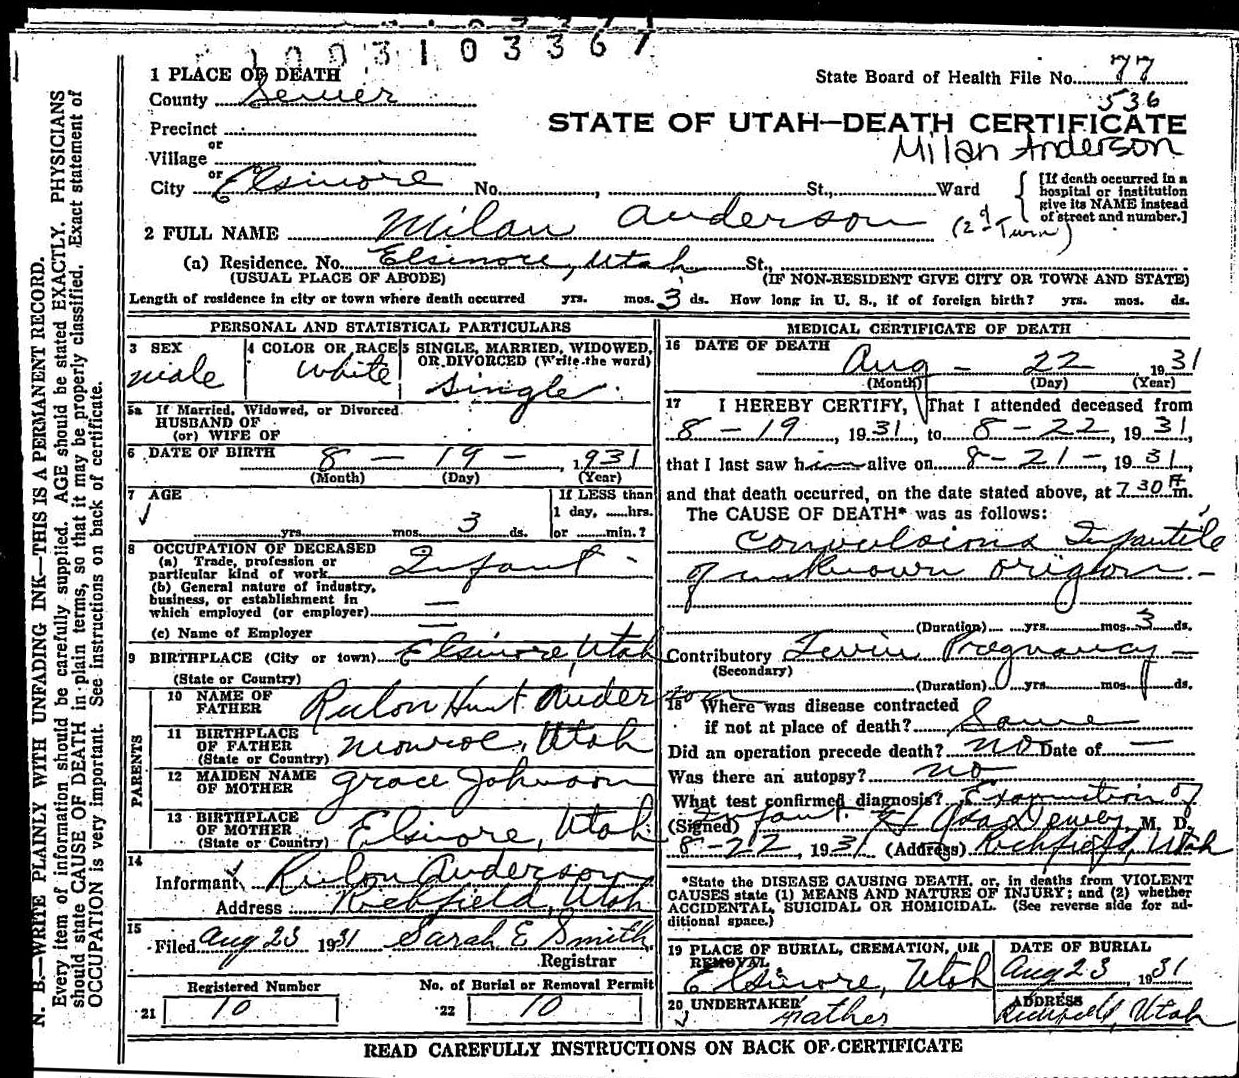 1003103367
1 PLACE OF DEATH
State Board of Health File No. 77
County Sevier
536
STATE OF UTAH—DEATH CERTIFICATE
Precinct
Milan Anderson
or
Village
or
City Elsinore No. , St., Ward
[If death occurred in a hospital or institution give its NAME instead of street and number.]
2 FULL NAME Milan Anderson (2d Twin)
(a) Residence. No. Elsinore, Utah St.,
(USUAL PLACE OF ABODE) (IF NON-RESIDENT GIVE CITY OR TOWN AND STATE)
Length of residence in city or town where death occurred yrs. mos. 3 ds. How long in U. S., if of foreign birth? yrs. mos. ds.
PERSONAL AND STATISTICAL PARTICULARS
3 SEX
male
4 COLOR OR RACE
White
5 SINGLE, MARRIED, WIDOWED, OR DIVORCED (Write the word)
Single
5a If Married, Widowed, or Divorced
HUSBAND OF
(or) WIFE OF
6 DATE OF BIRTH 8 — 19 — , 1931
(Month) (Day) (Year)
7 AGE
yrs. mos. 3 ds.
If LESS than
1 day, hrs.
or min.?
8 OCCUPATION OF DECEASED
(a) Trade, profession or
particular kind of work Infant -
(b) General nature of industry,
business, or establishment in
which employed (or employer)
(c) Name of Employer
9 BIRTHPLACE (City or town) Elsinore, Utah
(State or Country)
PARENTS
10 NAME OF FATHER Rulon Hunt Anderson
11 BIRTHPLACE OF FATHER Monroe, Utah
(State or Country)
12 MAIDEN NAME OF MOTHER Grace Johnson
13 BIRTHPLACE OF MOTHER Elsinore, Utah
(State or Country)
14
Informant Rulon Anderson
Address Richfield, Utah
15
Filed Aug 23 1931 Sarah E Smith
Registrar
Registered Number
21 10
No. of Burial or Removal Permit
22 10
MEDICAL CERTIFICATE OF DEATH
16 DATE OF DEATH
Aug - 22 1931
(Month) (Day) (Year)
17 I HEREBY CERTIFY, That I attended deceased from
8 - 19 , 1931, to 8 - 22, 1931,
that I last saw him alive on 8 - 21 -, 1931,
and that death occurred, on the date stated above, at 7 30 A m.
The CAUSE OF DEATH* was as follows:
Convulsions Infantile
of unknown origion. -
(Duration) yrs. mos. 3 ds.
Contributory Twin Pregnancy —
(Secondary)
(Duration) yrs. mos. ds.
18 Where was disease contracted
if not at place of death? Same
Did an operation precede death? NO Date of —
Was there an autopsy? no
What test confirmed diagnosis? Examination of
Infant.
(Signed) Dewey, M. D.
8-22, 1931 (Address) Richfield, Utah
*State the DISEASE CAUSING DEATH, or, in deaths from VIOLENT
CAUSES state (1) MEANS AND NATURE OF INJURY; and (2) whether
ACCIDENTAL, SUICIDAL OR HOMICIDAL. (See reverse side for ad-
ditional space.)
19 PLACE OF BURIAL, CREMATION, OR REMOVAL
Elsinore, Utah
DATE OF BURIAL
Aug 23, 1931
20 UNDERTAKER
Father
ADDRESS
Richfield, Utah
READ CAREFULLY INSTRUCTIONS ON BACK OF CERTIFICATE
N. B.—WRITE PLAINLY WITH UNFADING INK—THIS IS A PERMANENT RECORD.
Every item of information should be carefully supplied. AGE should be stated EXACTLY. PHYSICIANS
should state CAUSE OF DEATH in plain terms, so that it may be properly classified. Exact statement of
OCCUPATION is very important. See Instructions on back of certificate.